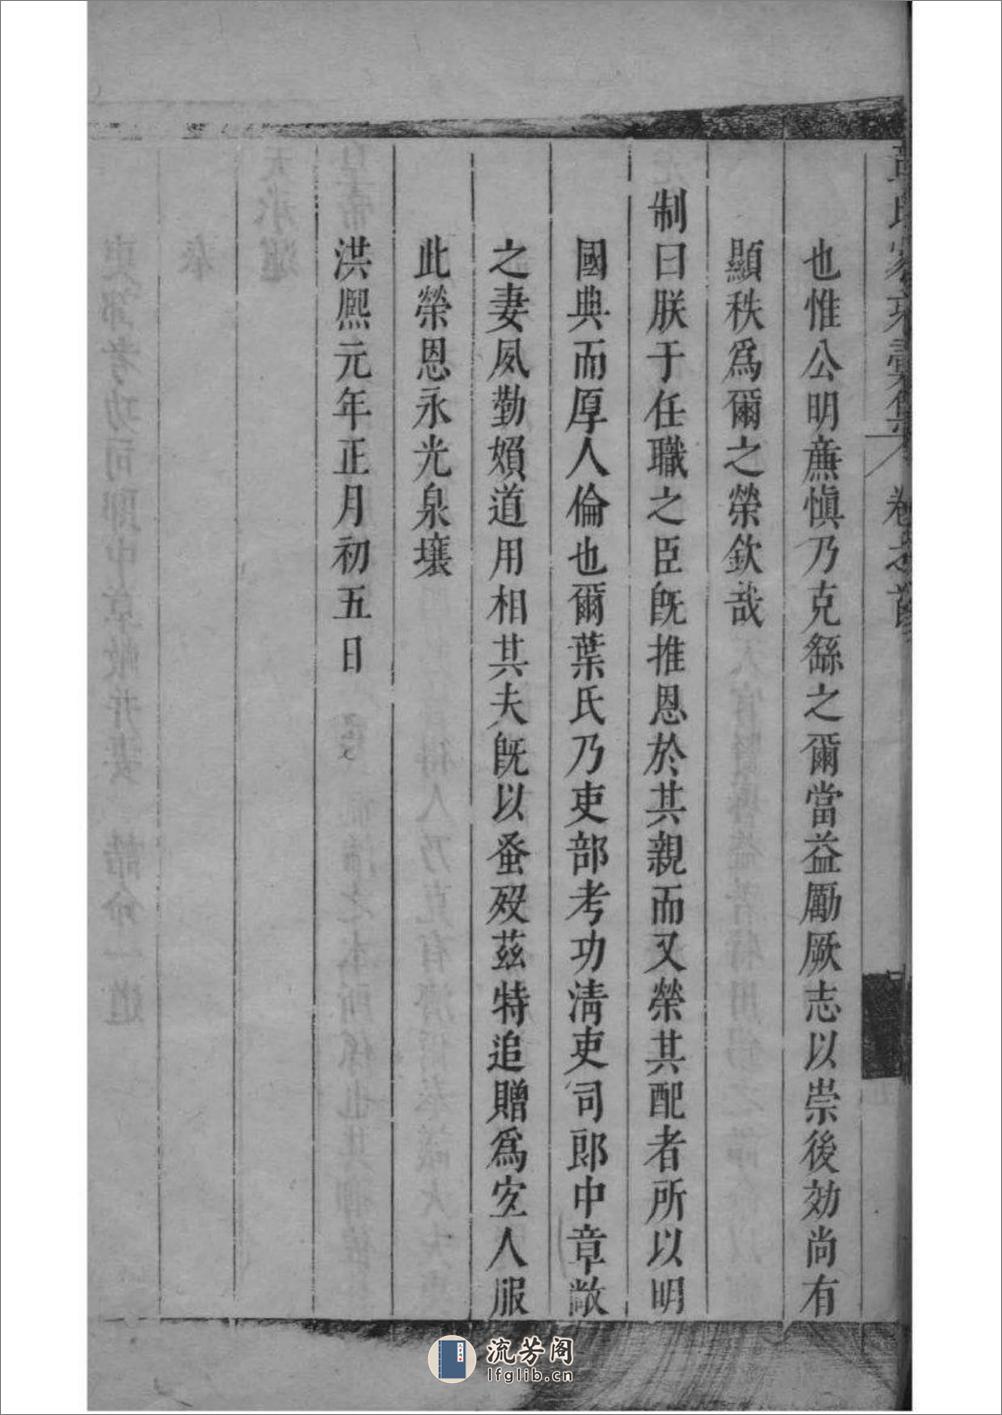 也惟公明廉慎乃克繇之爾當益勵厥志以崇後効尚有
顯秩爲爾之榮欽哉
制曰朕于任職之臣旣推恩於其親而又榮其配者所以明
國典而厚人倫也爾葉氏乃吏部考功清吏司郎中章敞
之妻夙勤嬪道用相其夫旣以蚤歿茲特追贈爲宜人服
此榮恩永光泉壤
洪熙元年正月初五日
流芳阁
lfglib.cn